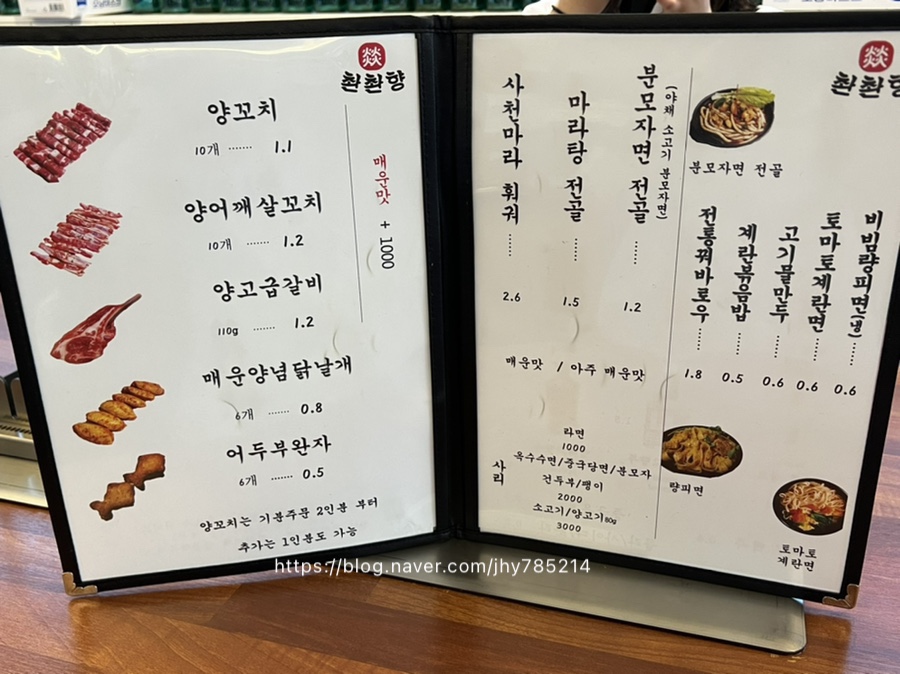 燚
촨촨향
양꼬치
10개 ······· 1.1
양어깨살꼬치
10개 ······· 1.2
양고급갈비
110g ······· 1.2
매운양념닭날개
6개 ······· 0.8
어두부완자
6개 ······· 0.5
매운맛 + 1000
양꼬치는 기분주문 2인분 부터
추가는 1인분도 가능
燚
촨촨향
사천마라 훠궈 ······ 2.6
마라탕 전골 ······ 1.5
분모자면 전골 ······ 1.2
(야채 소고기 분모자면)
매운맛 / 아주 매운맛
사리
라면
1000
옥수수면/중국당면/분모자
건두부/팽이
2000
소고기/양고기80g
3000
분모자면 전골
전통꿔바로우 ······ 1.8
계란볶음밥 ······ 0.5
고기물만두 ······ 0.6
토마토계란면 ······ 0.6
비빔량피면(냉) ······ 0.6
량피면
토마토
계란면
https://blog.naver.com/jhy785214